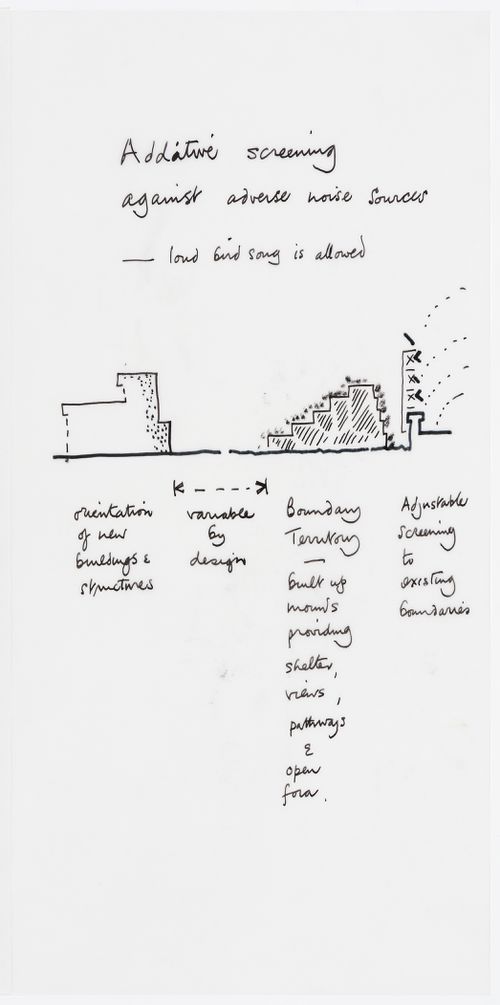 Additive screening
against adverse noise sources
— loud bird song is allowed
orientation
of new
buildings &
structures
variable
by
design
Boundary
Territory
—
built up
mounds
providing
shelter,
views,
pathways
&
open
fora.
Adjustable
screening
to
existing
boundaries